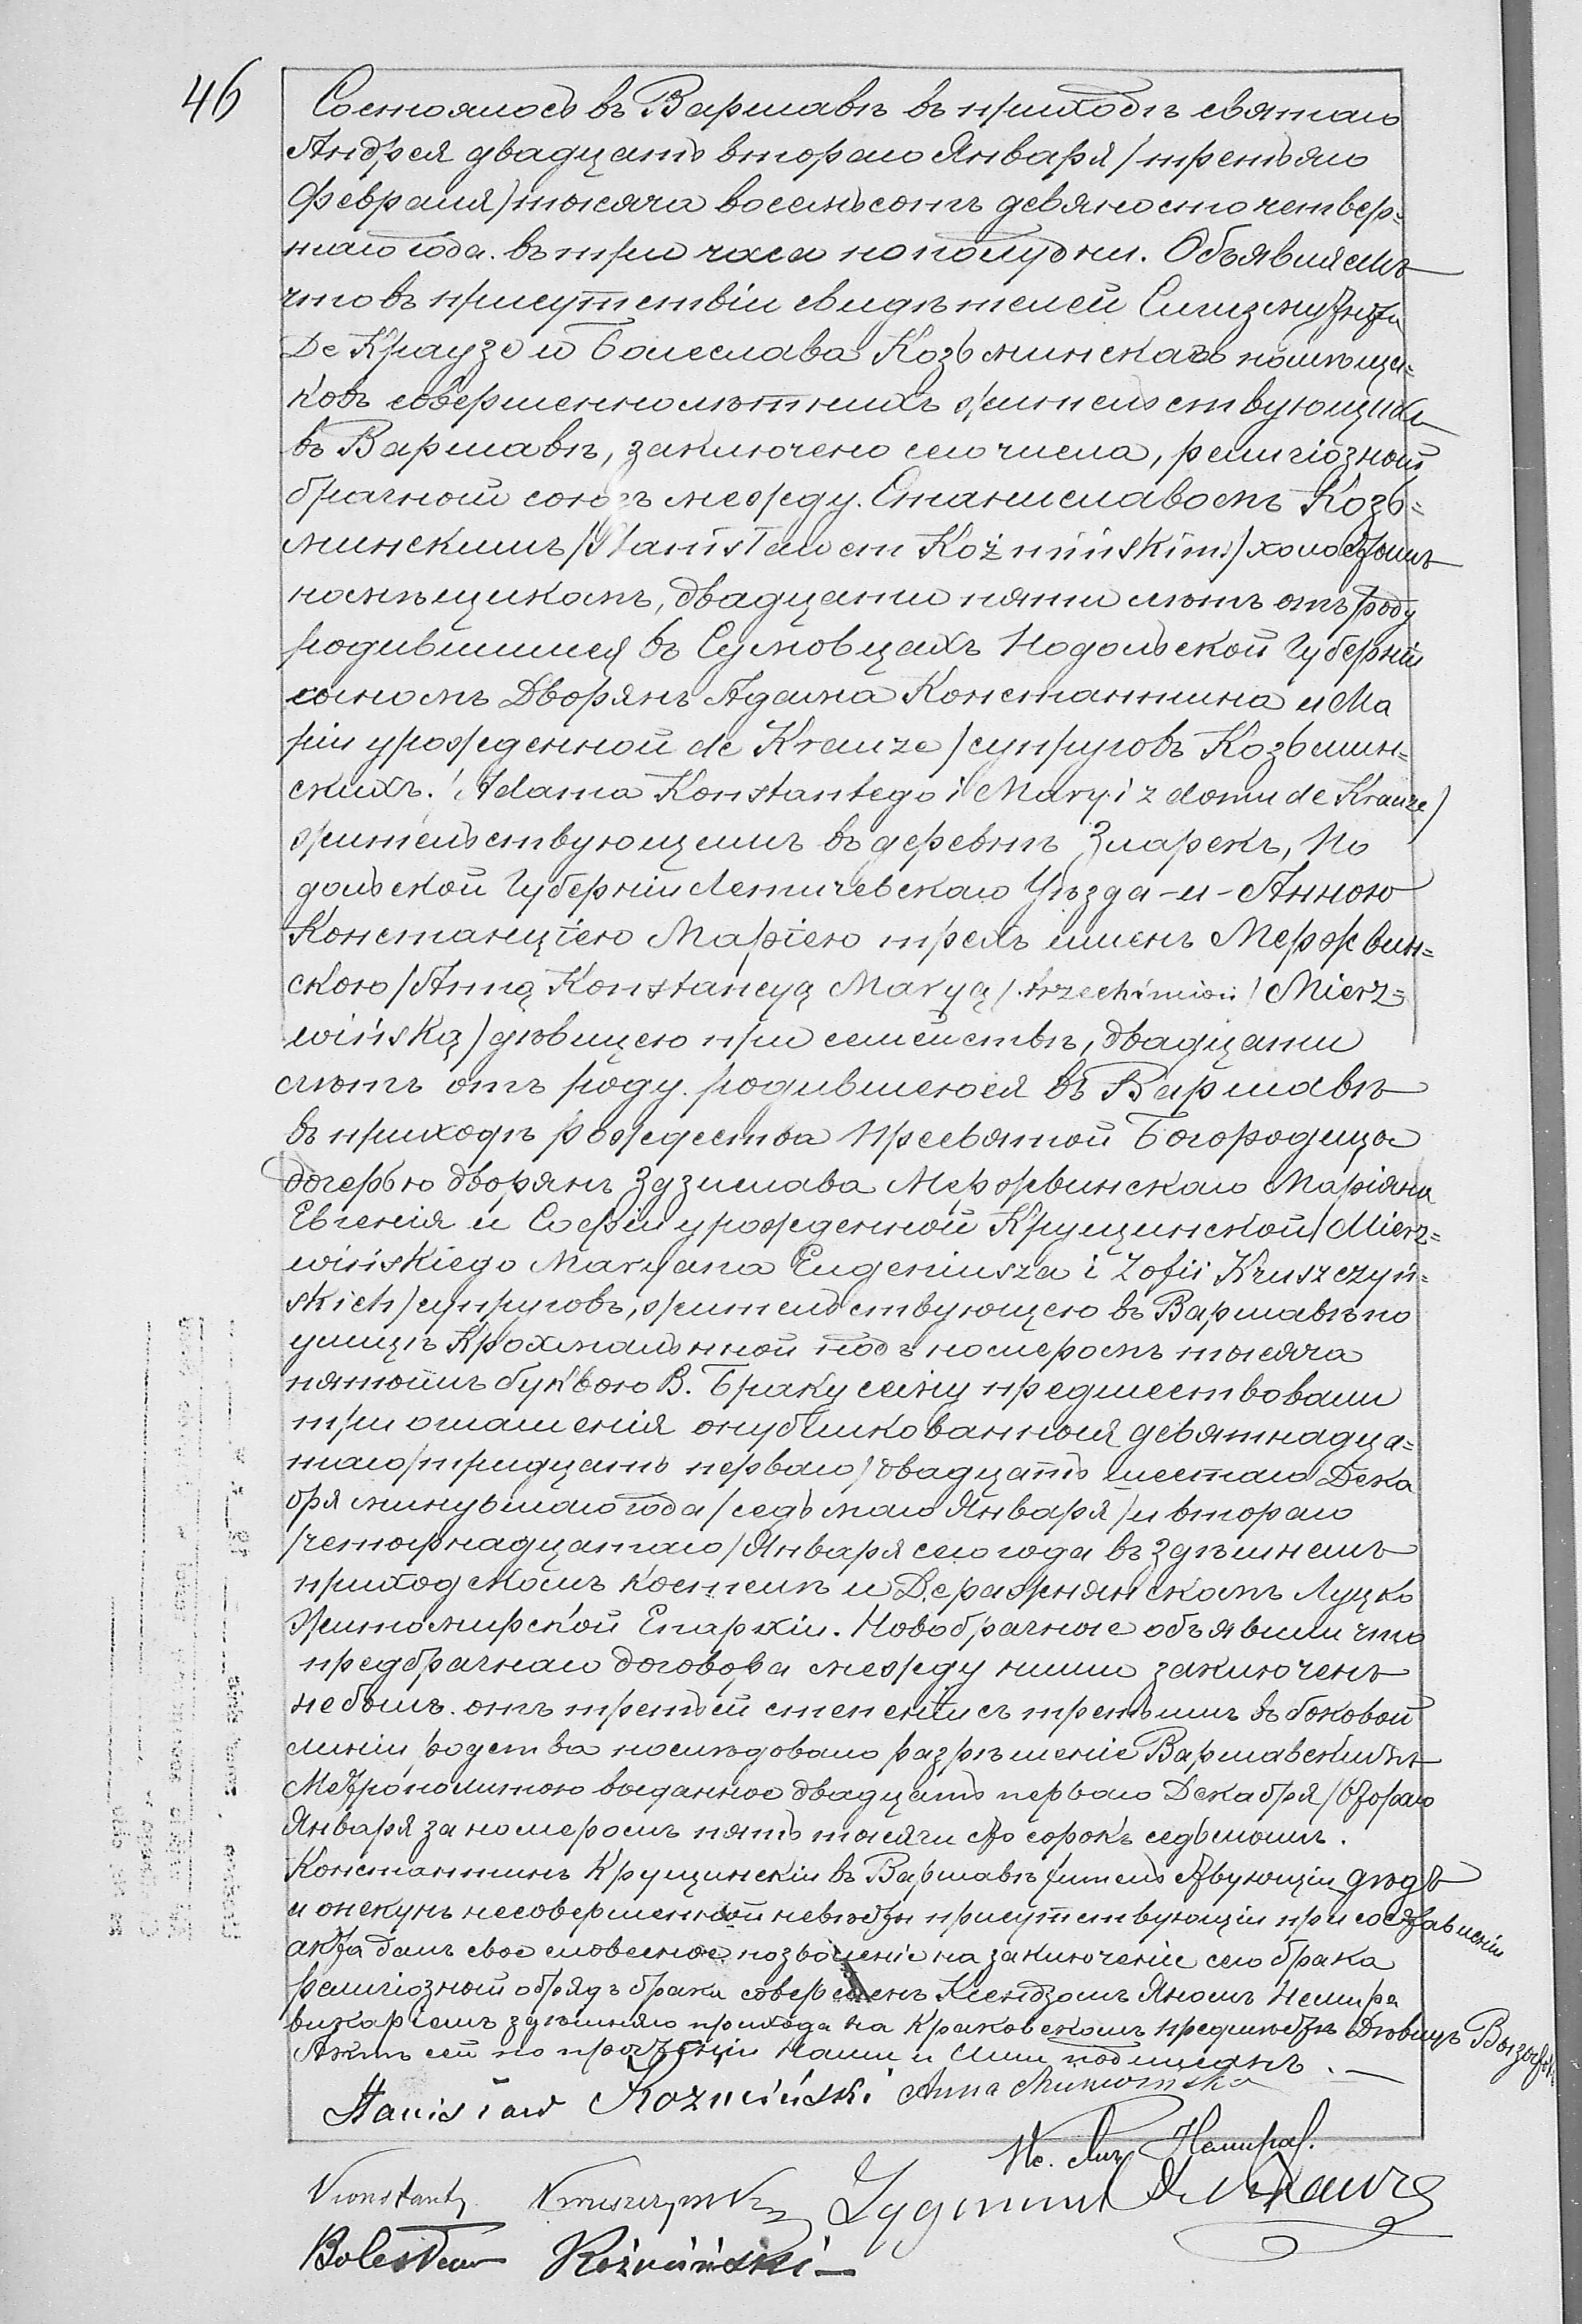 46
Состоялось въ Варшавѣ въ приходѣ святаго
Андрея двадцать втораго Января /третьяго
Февраля/ тысяча восемьсотъ девяносто четвер=
таго года. въ три часа по полудни. Объявляемъ
что въ присутствіи свидѣтелей Сигизмунда
Де Краузе и Болеслава Козьминскаго помѣщи=
ковъ совершеннолѣтнихъ жительствующихъ
въ Варшавѣ, заключено сего числа, религіозный
брачный союзъ между. Станиславомъ Козь=
минскимъ /Stanisławem Koźmińskim/ холостымъ
помѣщикомъ, двадцати пяти лѣтъ отъ роду
родившимся въ Сумовцахъ Подольской Губерніи
сыномъ Дворянъ Адама Константина и Ма
ріи урожденной de Krauze /супруговъ Козьмин=
скихъ. /Adama Konstantego i Maryi z domu de Krauze/
жительствующемъ въ деревнѣ Згарекъ, По
дольской Губерніи Летичевскаго Уѣзда - и - Анною
Констанціею Маріею трехъ именъ Мержвин=
скою /Anną Konstancyą Maryą /trzech imion/ Mierz=
wińską/ дѣвицею при семействѣ, двадцати
лѣтъ отъ роду. родившеюся въ Варшавѣ
въ приходѣ рождества Пресвятой Богородицы
дочерью дворянъ Здзислава Мержвинскаго Маріяна
Евгенія и Софіи урожденной Крущинской /Mierz=
wińskiego Maryana Eugeniusza i Zofii Kruszczyń=
skich/ супруговъ, жительствующею въ Варшавѣ по
улицѣ Крохмальной подъ номеромъ тысяча
пятымъ буквою В. Браку сему предшествовали
три оглашенія опубликованныя девятнадца=
таго /тридцать перваго/ двадцать шестаго Дека
бря минувшаго года /седьмаго Января/ и втораго
/четырнадцатаго/ Января сего года въ здѣшнемъ
приходскомъ костелѣ и Деражнянскомъ Луцко
Житомирской Епархіи. Новобрачные объявили что
предбрачнаго договора между ними заключенъ
не былъ. отъ третьей степени съ третьимъ въ боковой
линіи родства послѣдовало разрѣшеніе Варшавскимъ
Метрополитою выданное двадцать перваго Декабря /втораго
Января за номеромъ пять тысячи сто сорокъ седьмымъ.
Константинъ Крущинскій въ Варшавѣ жительствующій дѣдъ
и опекунъ несовершенной невѣсты присутствующій при составленіи
акта далъ свое словесное позволеніе на заключеніе сего брака
религіозный обрядъ брака совершенъ Ксендзомъ Яномъ Немира
викаріемъ здѣшняго прихода на Краковскомъ предмѣстьѣ Дѣвицъ
Актъ сей по прочтеніи Нами и Ими подписанъ. —
Stanisław Koźmiński Anna
Кс. Янъ Немира.
Konstanty Kruszczyński Zygmunt de Krauze
Bolesław Koźmiński —